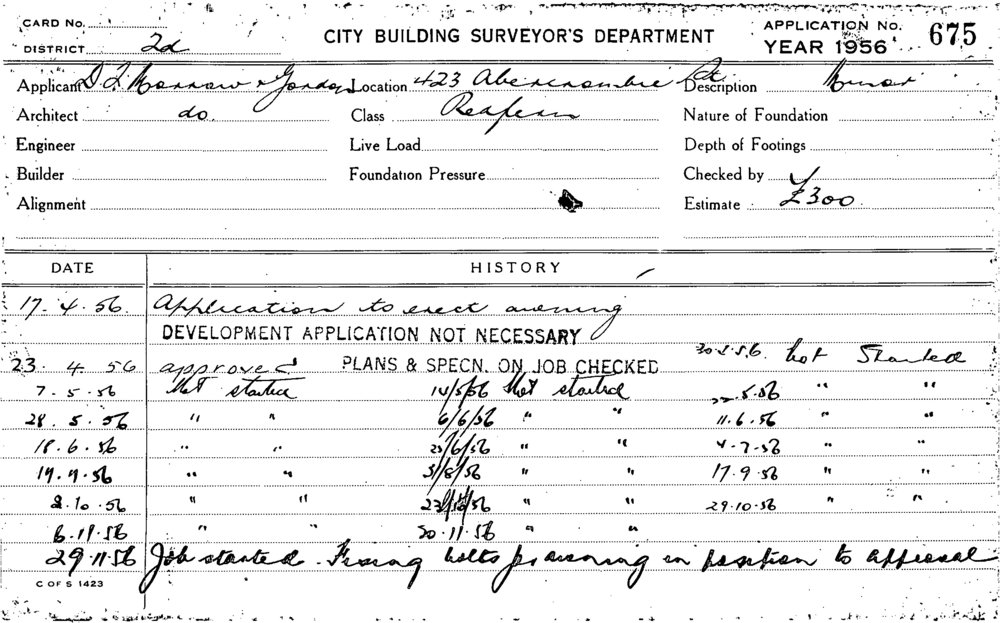 CARD No.
DISTRICT 2d
CITY BUILDING SURVEYOR'S DEPARTMENT
APPLICATION No. 675
YEAR 1956
Applicant D T Morrow & Gordon Location 423 Abercrombie St Description Minor
Architect do. Class Nature of Foundation
Engineer Live Load Depth of Footings
Builder Foundation Pressure Checked by
Alignment Estimate £300
DATE HISTORY
17. 4. 56. Application to erect awning
DEVELOPMENT APPLICATION NOT NECESSARY
23. 4. 56 approved PLANS & SPECN. ON JOB CHECKED Not Started
7. 5. 56 Not started 14/5/56 Not started 22.5.56 " "
28. 5. 56 " " 6/6/56 " " 11.6.56 " "
18. 6. 56 " " 25/6/56 " " 4-7-56 " "
" " 31/8/56 " " 17.9.56 " "
2.10.56 " " " " 29.10.56 " "
6.11.56 " " 20.11.56 " "
29 11 56 Job started. Fixing bolts for awning in position to approval
C OF S 1423